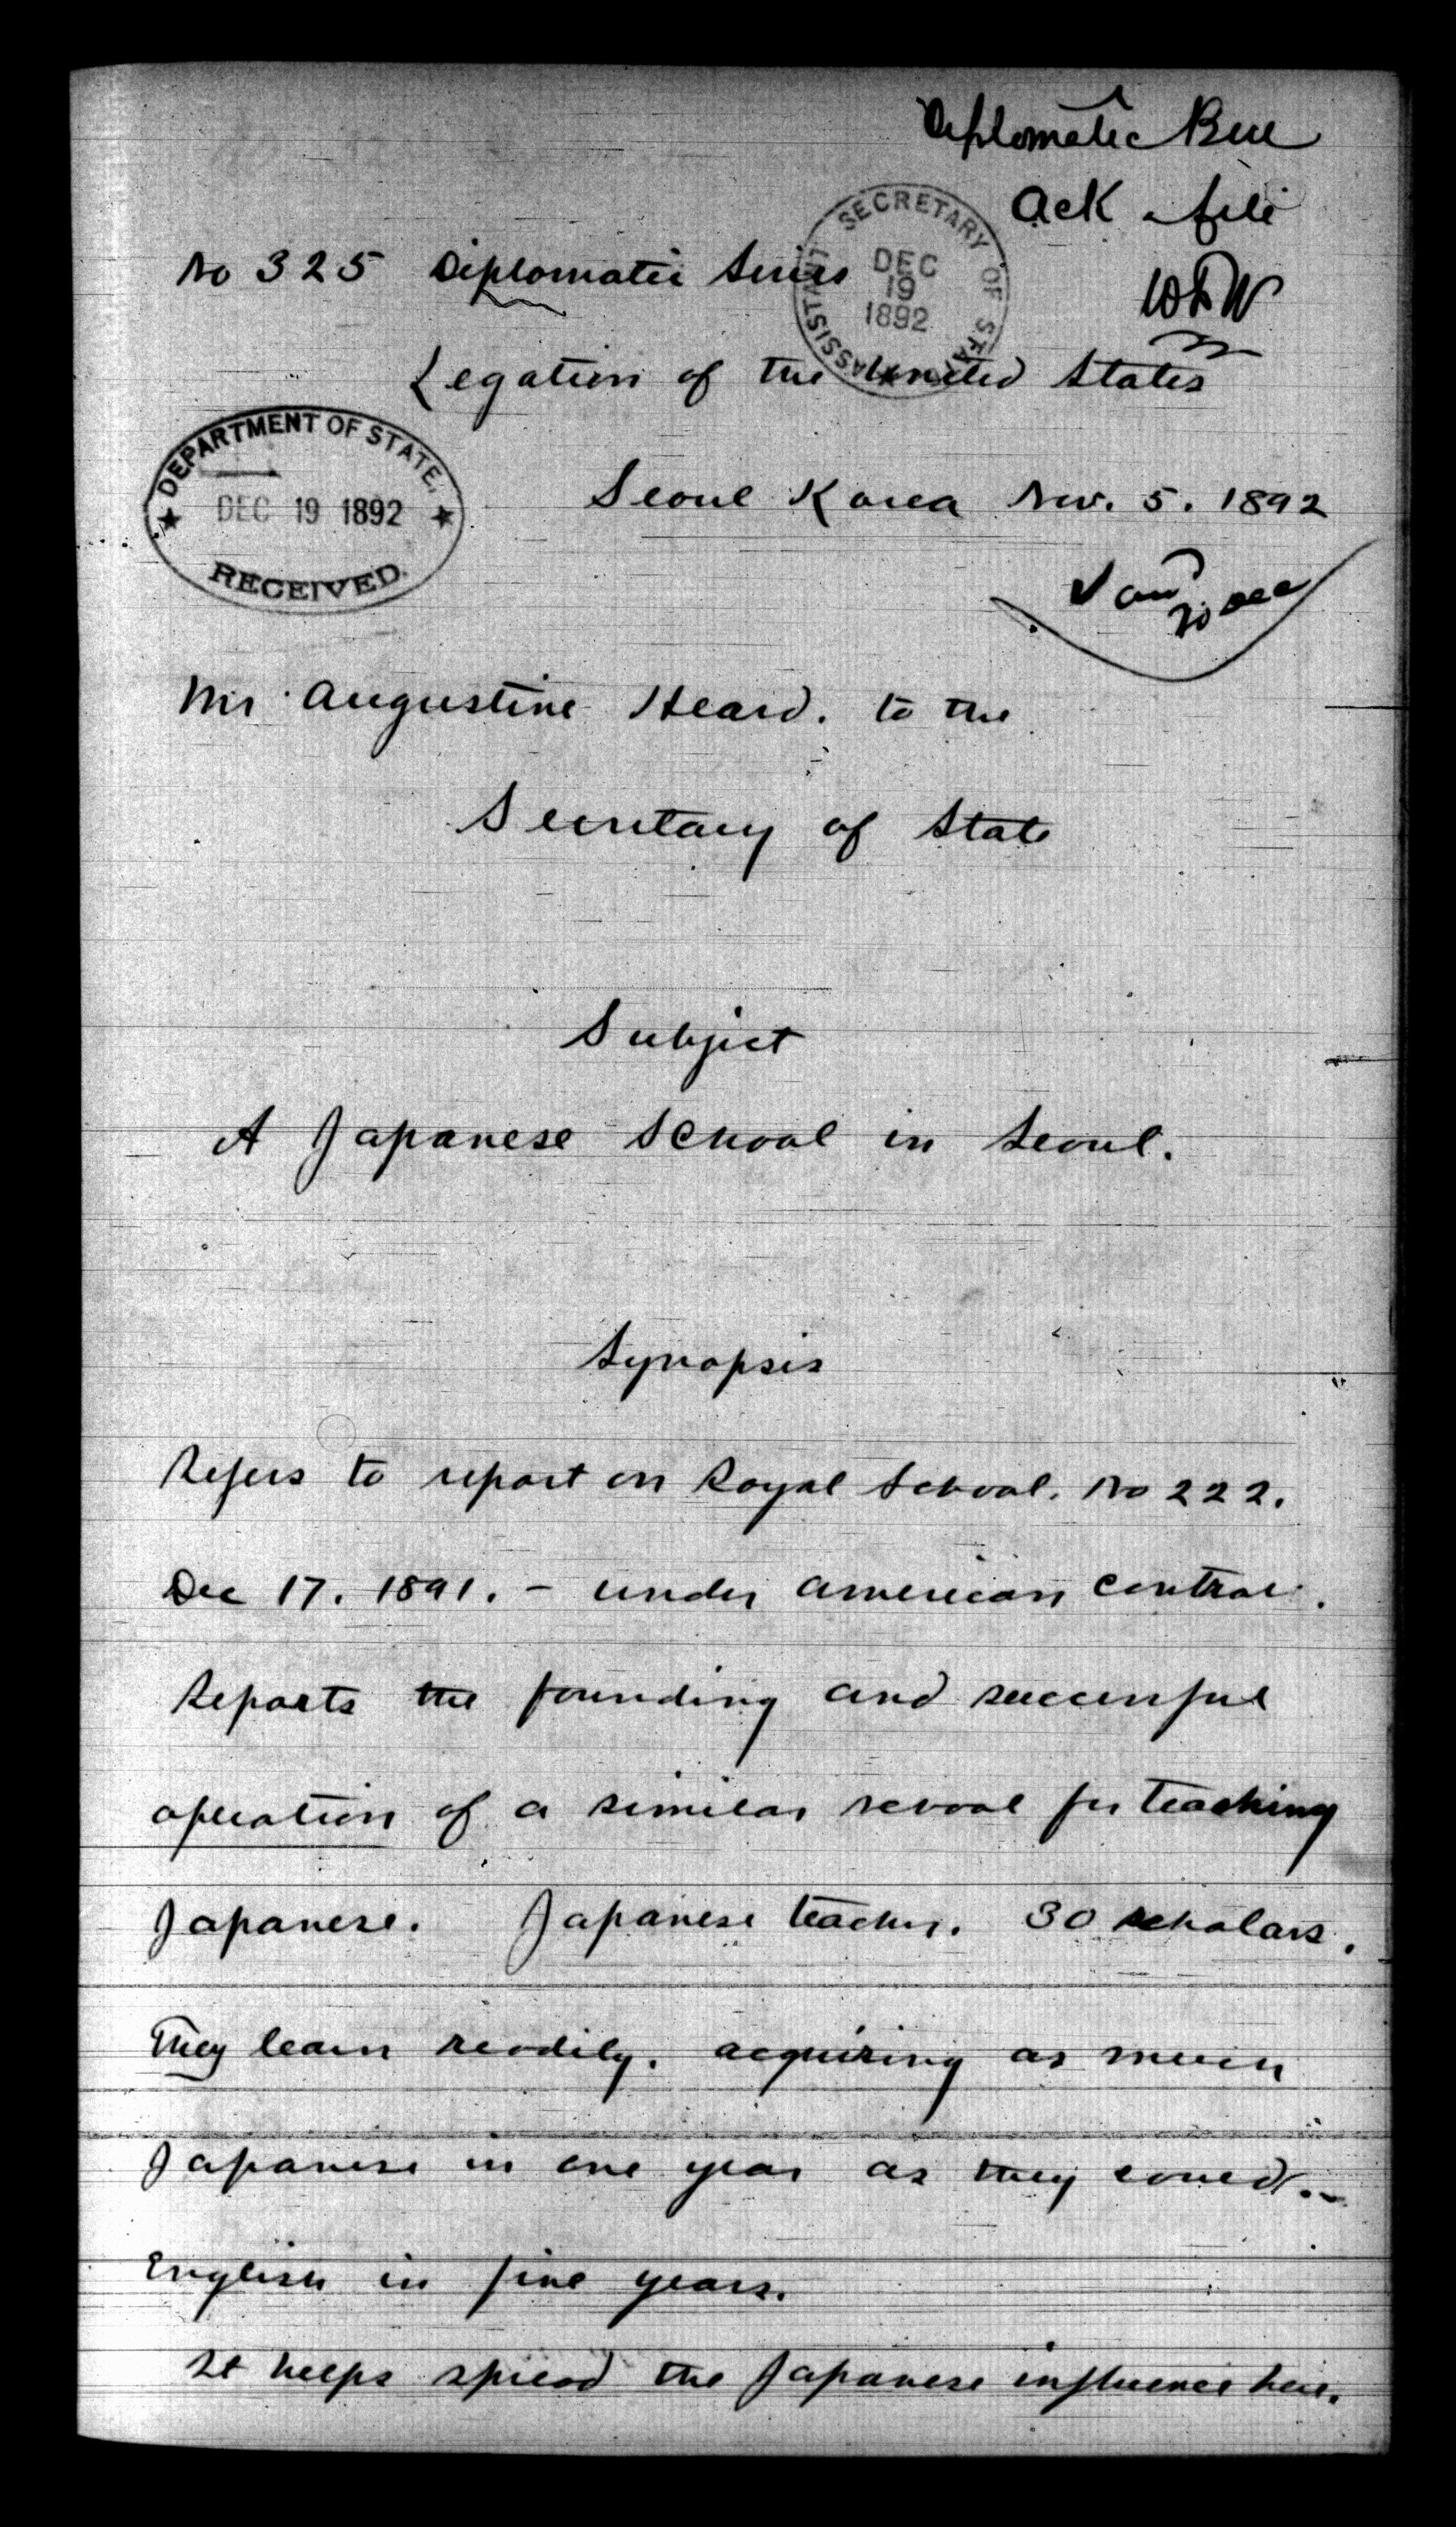 Diplomatic Bu
Ack file
No 325 Diplomatic Series
WFW
ASSISTANT SECRETARY OF STATE
DEC
19
1892
Legation of the United States
DEPARTMENT OF STATE,
DEC 19 1892
RECEIVED.
Seoul Korea Nov. 5. 1892
20 Dec
Mr Augustine Heard. to the
Secretary of State
Subject
A Japanese School in Seoul.
Synopsis
Refers to report on Royal School. No 222.
Dec 17. 1891. - under American control.
Reports the founding and successful
operation of a similar school for teaching
Japanese. Japanese teacher. 30 scholars.
They learn readily. acquiring as much
Japanese in one year as they could
English in five years.
It helps spread the Japanese influence here.